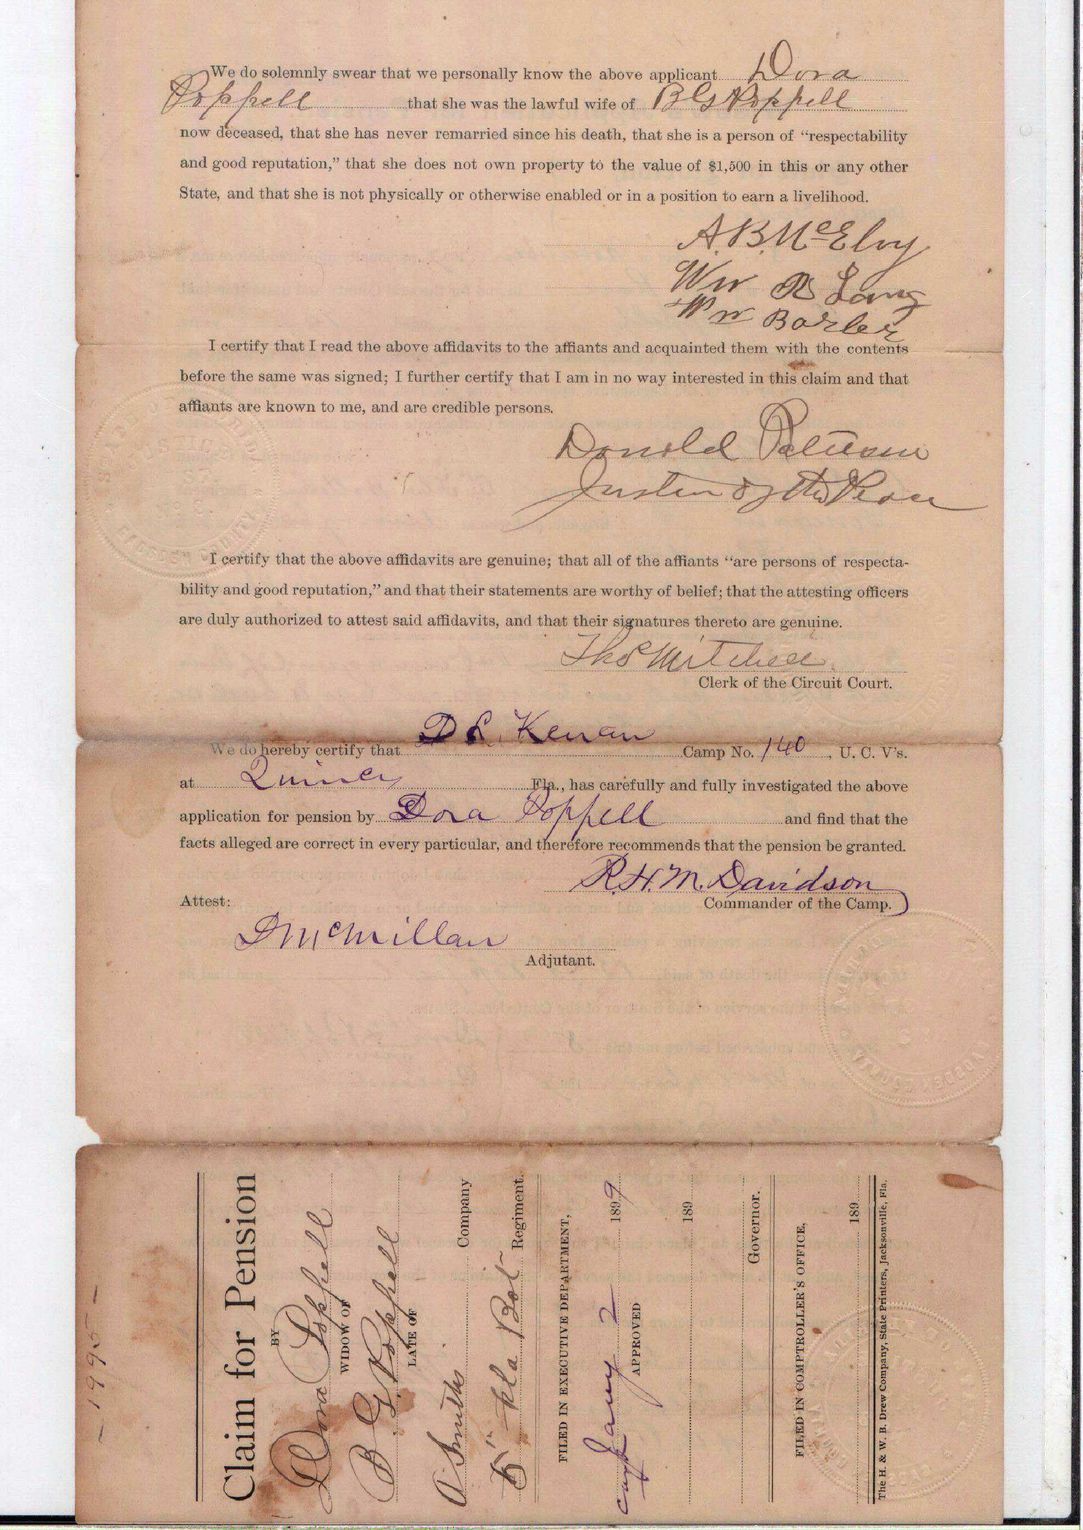 We do solemnly swear that we personally know the above applicant Dora
Poppell that she was the lawful wife of B G Poppell
now deceased, that she has never remarried since his death, that she is a person of “respectability
and good reputation,” that she does not own property to the value of $1,500 in this or any other
State, and that she is not physically or otherwise enabled or in a position to earn a livelihood.
A. B. McElvy
Wm R Long
Wm
I certify that I read the above affidavits to the affiants and acquainted them with the contents
before the same was signed; I further certify that I am in no way interested in this claim and that
affiants are known to me, and are credible persons.
Donald
Justice of the Peace
I certify that the above affidavits are genuine; that all of the affiants “are persons of respecta-
bility and good reputation,” and that their statements are worthy of belief; that the attesting officers
are duly authorized to attest said affidavits, and that their signatures thereto are genuine.
Thos Mitchell
Clerk of the Circuit Court.
We do hereby certify that D L Kenan Camp No. 140, U. C. V's.
at Quincy Fla., has carefully and fully investigated the above
application for pension by Dora Poppell and find that the
facts alleged are correct in every particular, and therefore recommends that the pension be granted.
R. H. M. Davidson
Commander of the Camp.
Attest:
D McMillan
Adjutant.
- 1995 -
Claim for Pension
BY
Dora Poppell
WIDOW OF
B G. Poppell
LATE OF
A Smiths Company
5" Fla Bat Regiment.
FILED IN EXECUTIVE DEPARTMENT,
Jany 2 1899
APPROVED
189
Governor.
FILED IN COMPTROLLER'S OFFICE,
189
The H. & W. B. Drew Company, State Printers, Jacksonville, Fla.